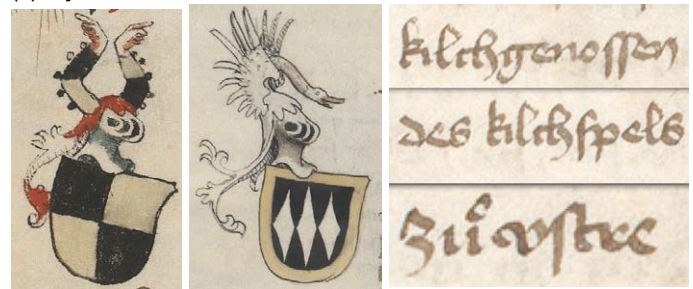 kilchgenoſſen
des kilchſpels
zů vſtre